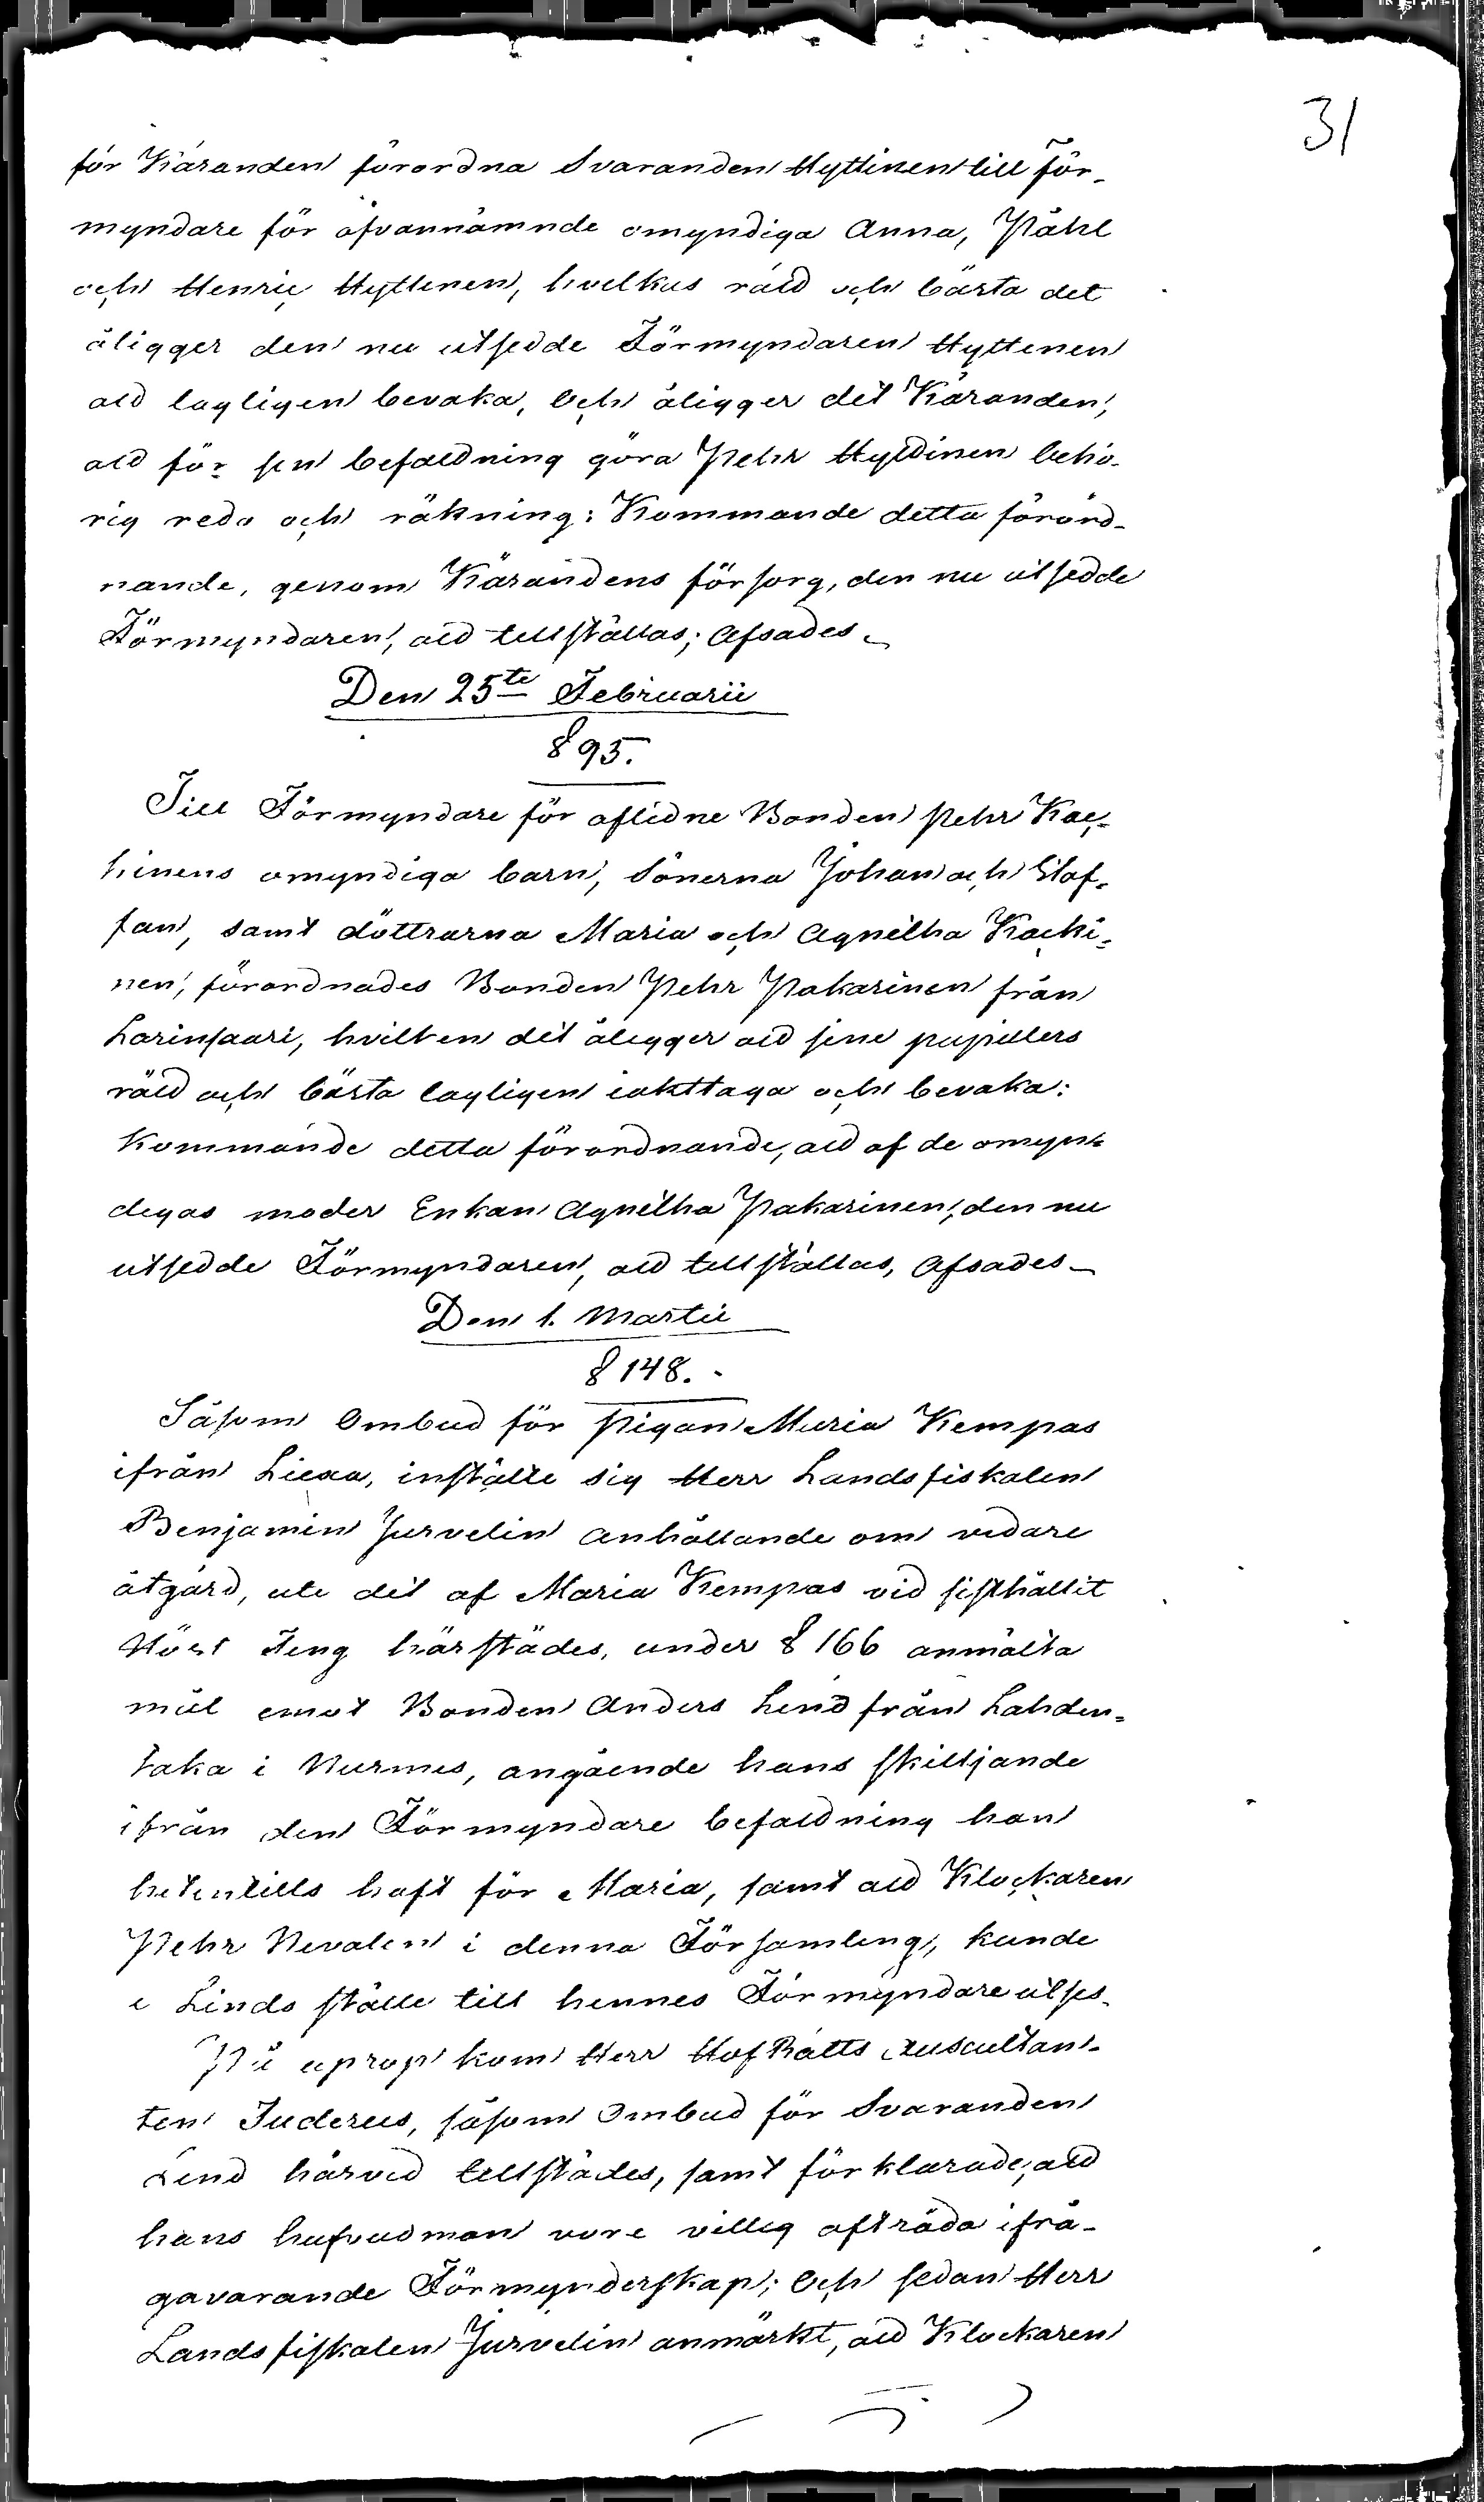 31
för Käranden förordna Svaranden Hyttinen till För-
myndare för ofvannämnde omyndiga Anna, Påhl
och Henric Hyttinen, hvilkas räld och bästa det
åligger den nu utsedde Förmyndaren Hyttinen
ald lagligen bevaka, och åligger det Käranden,
ald för sin befaldning göra Pehr Hyldinen behö-
rig redo och räkning: Kommande detta förord-
nande, genom Kärandens försorg, den nu utsedde
Förmyndaren, ald tillställas; Afsades.
Den 25te Februarii
§ 95.
Till Förmyndare för aflidne Bonden Pehr Kac-
hinens omyndiga barn, Sönerna Johan och Staf-
fan, samt döttrarna Maria och Agnetha Kachi-
nen, förordnades Bonden Pehr Pakarinen från
Larinsaari, hvilken det åligger ald sine pupillers
räld och bästa lagligen iakttaga och bevaka:
Kommande detta förordnande, ald af de omyn-
digas moder Enkan Agnetha Pakarinen, den nu
utsedde Förmyndaren, ald tillställas, Afsades.
Den 1. Martii
§ 148.
Såsom Ombud för Pigan Maria Kempas
ifrån Liexa, instälte sig Herr Landsfiskalen
Benjamin Jurvelin anhållande om vidare
åtgärd, uti det af Maria Kempas vid sisthållit
Höst Ting härstädes, under § 166 anmälta
mål emot Bonden Anders Lind från Lahden-
taka i Nurmis, angående hans skiljande
ifrån den Förmyndare befaldning han
hitintills haft för Maria, samt ald Klockaren
Pehr Nevalen i denna Församling, kunde
i Linds ställe till hennes Förmyndare utses.
På uprop kom Herr HofRätts Auscultan-
ten Juderus, såsom Ombud för Svaranden
Lind härvid tillstädes, samt förklarade, ald
hans hufvudman vore villig afträda ifrå-
gavarande Förmynderskap; Och sedan Herr
Landsfiskalen Jurvelin anmärkt, ald Klockaren